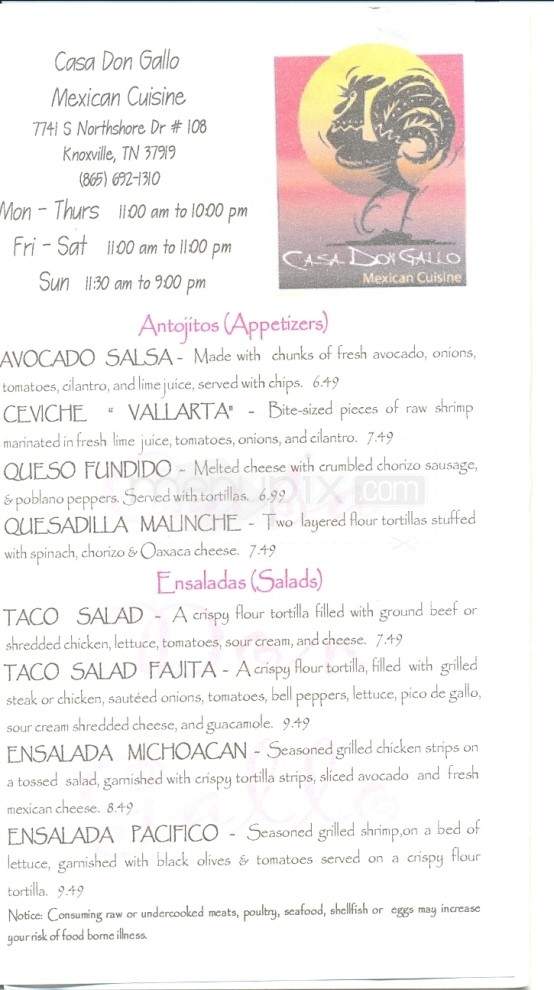 Casa Don Gallo
Mexican Cuisine
7741 S Northshore Dr # 108
Knoxville, TN 37919
(865) 692-1310
Mon - Thurs 11:00 am to 10:00 pm
Fri - Sat 11:00 am to 11:00 pm
Sun 11:30 am to 9:00 pm
CASA DON GALLO
Mexican Cuisine
Antojitos (Appetizers)
AVOCADO SALSA - Made with chunks of fresh avocado, onions,
tomatoes, cilantro, and lime juice, served with chips. 6.49
CEVICHE " VALLARTA" - Bite-sized pieces of raw shrimp
marinated in fresh lime juice, tomatoes, onions, and cilantro. 7.49
QUESO FUNDIDO - Melted cheese with crumbled chorizo sausage,
& poblano peppers. Served with tortillas. 6.99
menupix.com
QUESADILLA MALINCHE - Two layered flour tortillas stuffed
with spinach, chorizo & Oaxaca cheese. 7.49
Ensaladas (Salads)
TACO SALAD - A crispy flour tortilla filled with ground beef or
shredded chicken, lettuce, tomatoes, sour cream, and cheese. 7.49
TACO SALAD FAJITA - A crispy flour tortilla, filled with grilled
steak or chicken, sautéed onions, tomatoes, bell peppers, lettuce, pico de gallo,
sour cream shredded cheese, and guacamole. 9.49
ENSALADA MICHOACAN - Seasoned grilled chicken strips on
a tossed salad, garnished with crispy tortilla strips, sliced avocado and fresh
mexican cheese. 8.49
ENSALADA PACIFICO - Seasoned grilled shrimp,on a bed of
lettuce, garnished with black olives & tomatoes served on a crispy flour
tortilla. 9.49
Notice: Consuming raw or undercooked meats, poultry, seafood, shellfish or eggs may increase
your risk of food borne illness.